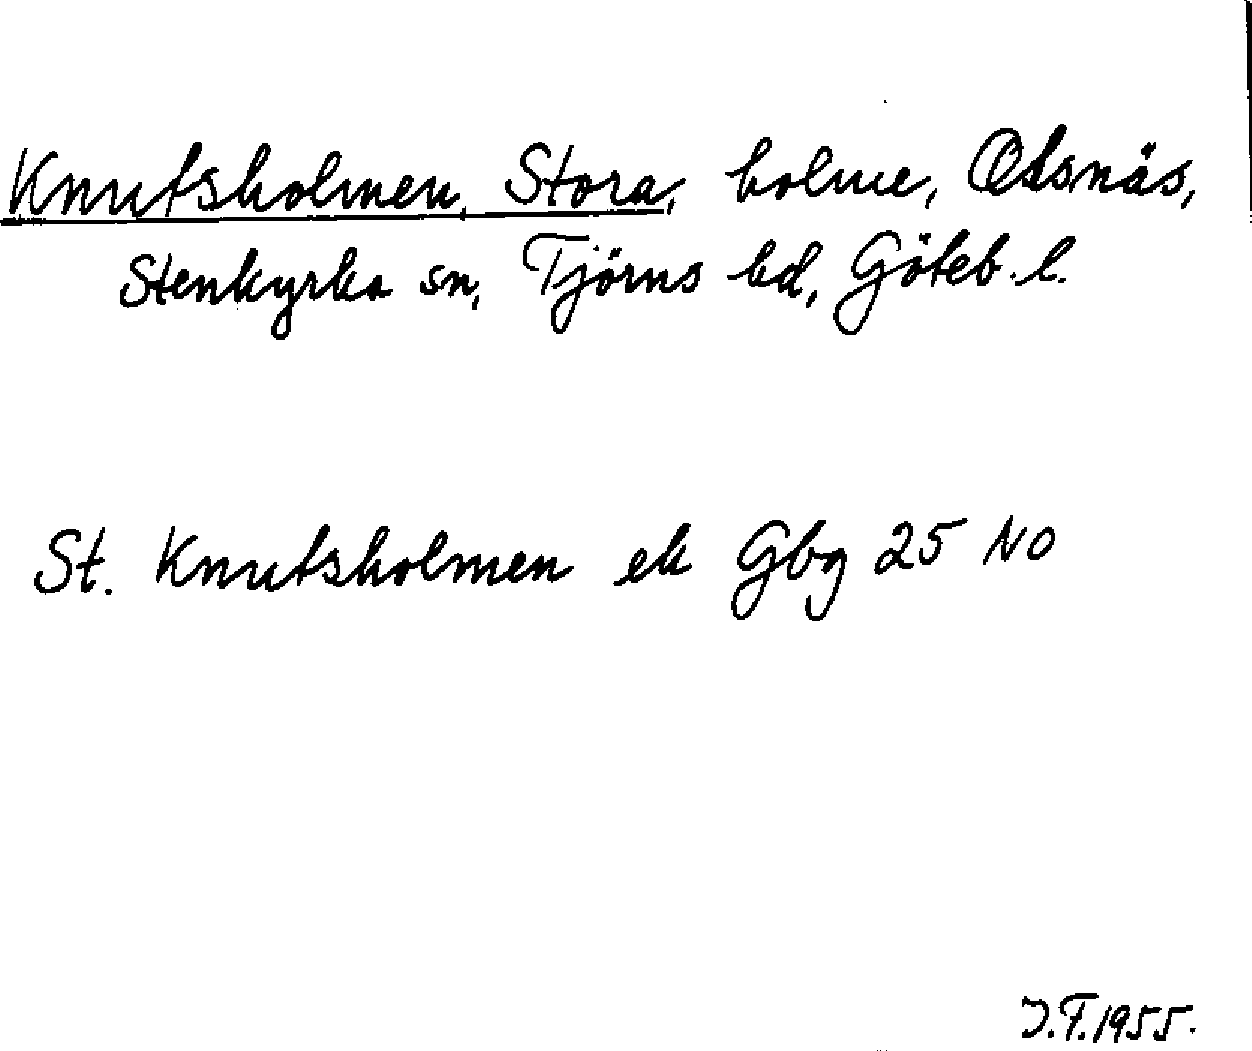 Knutsholmen, Stora, holme, Otsnäs,
Stenkyrka sn, Tjörns hd, Göteb. l.
St. Knutsholmen ek Gbg 25 NO
J.F. 1955.